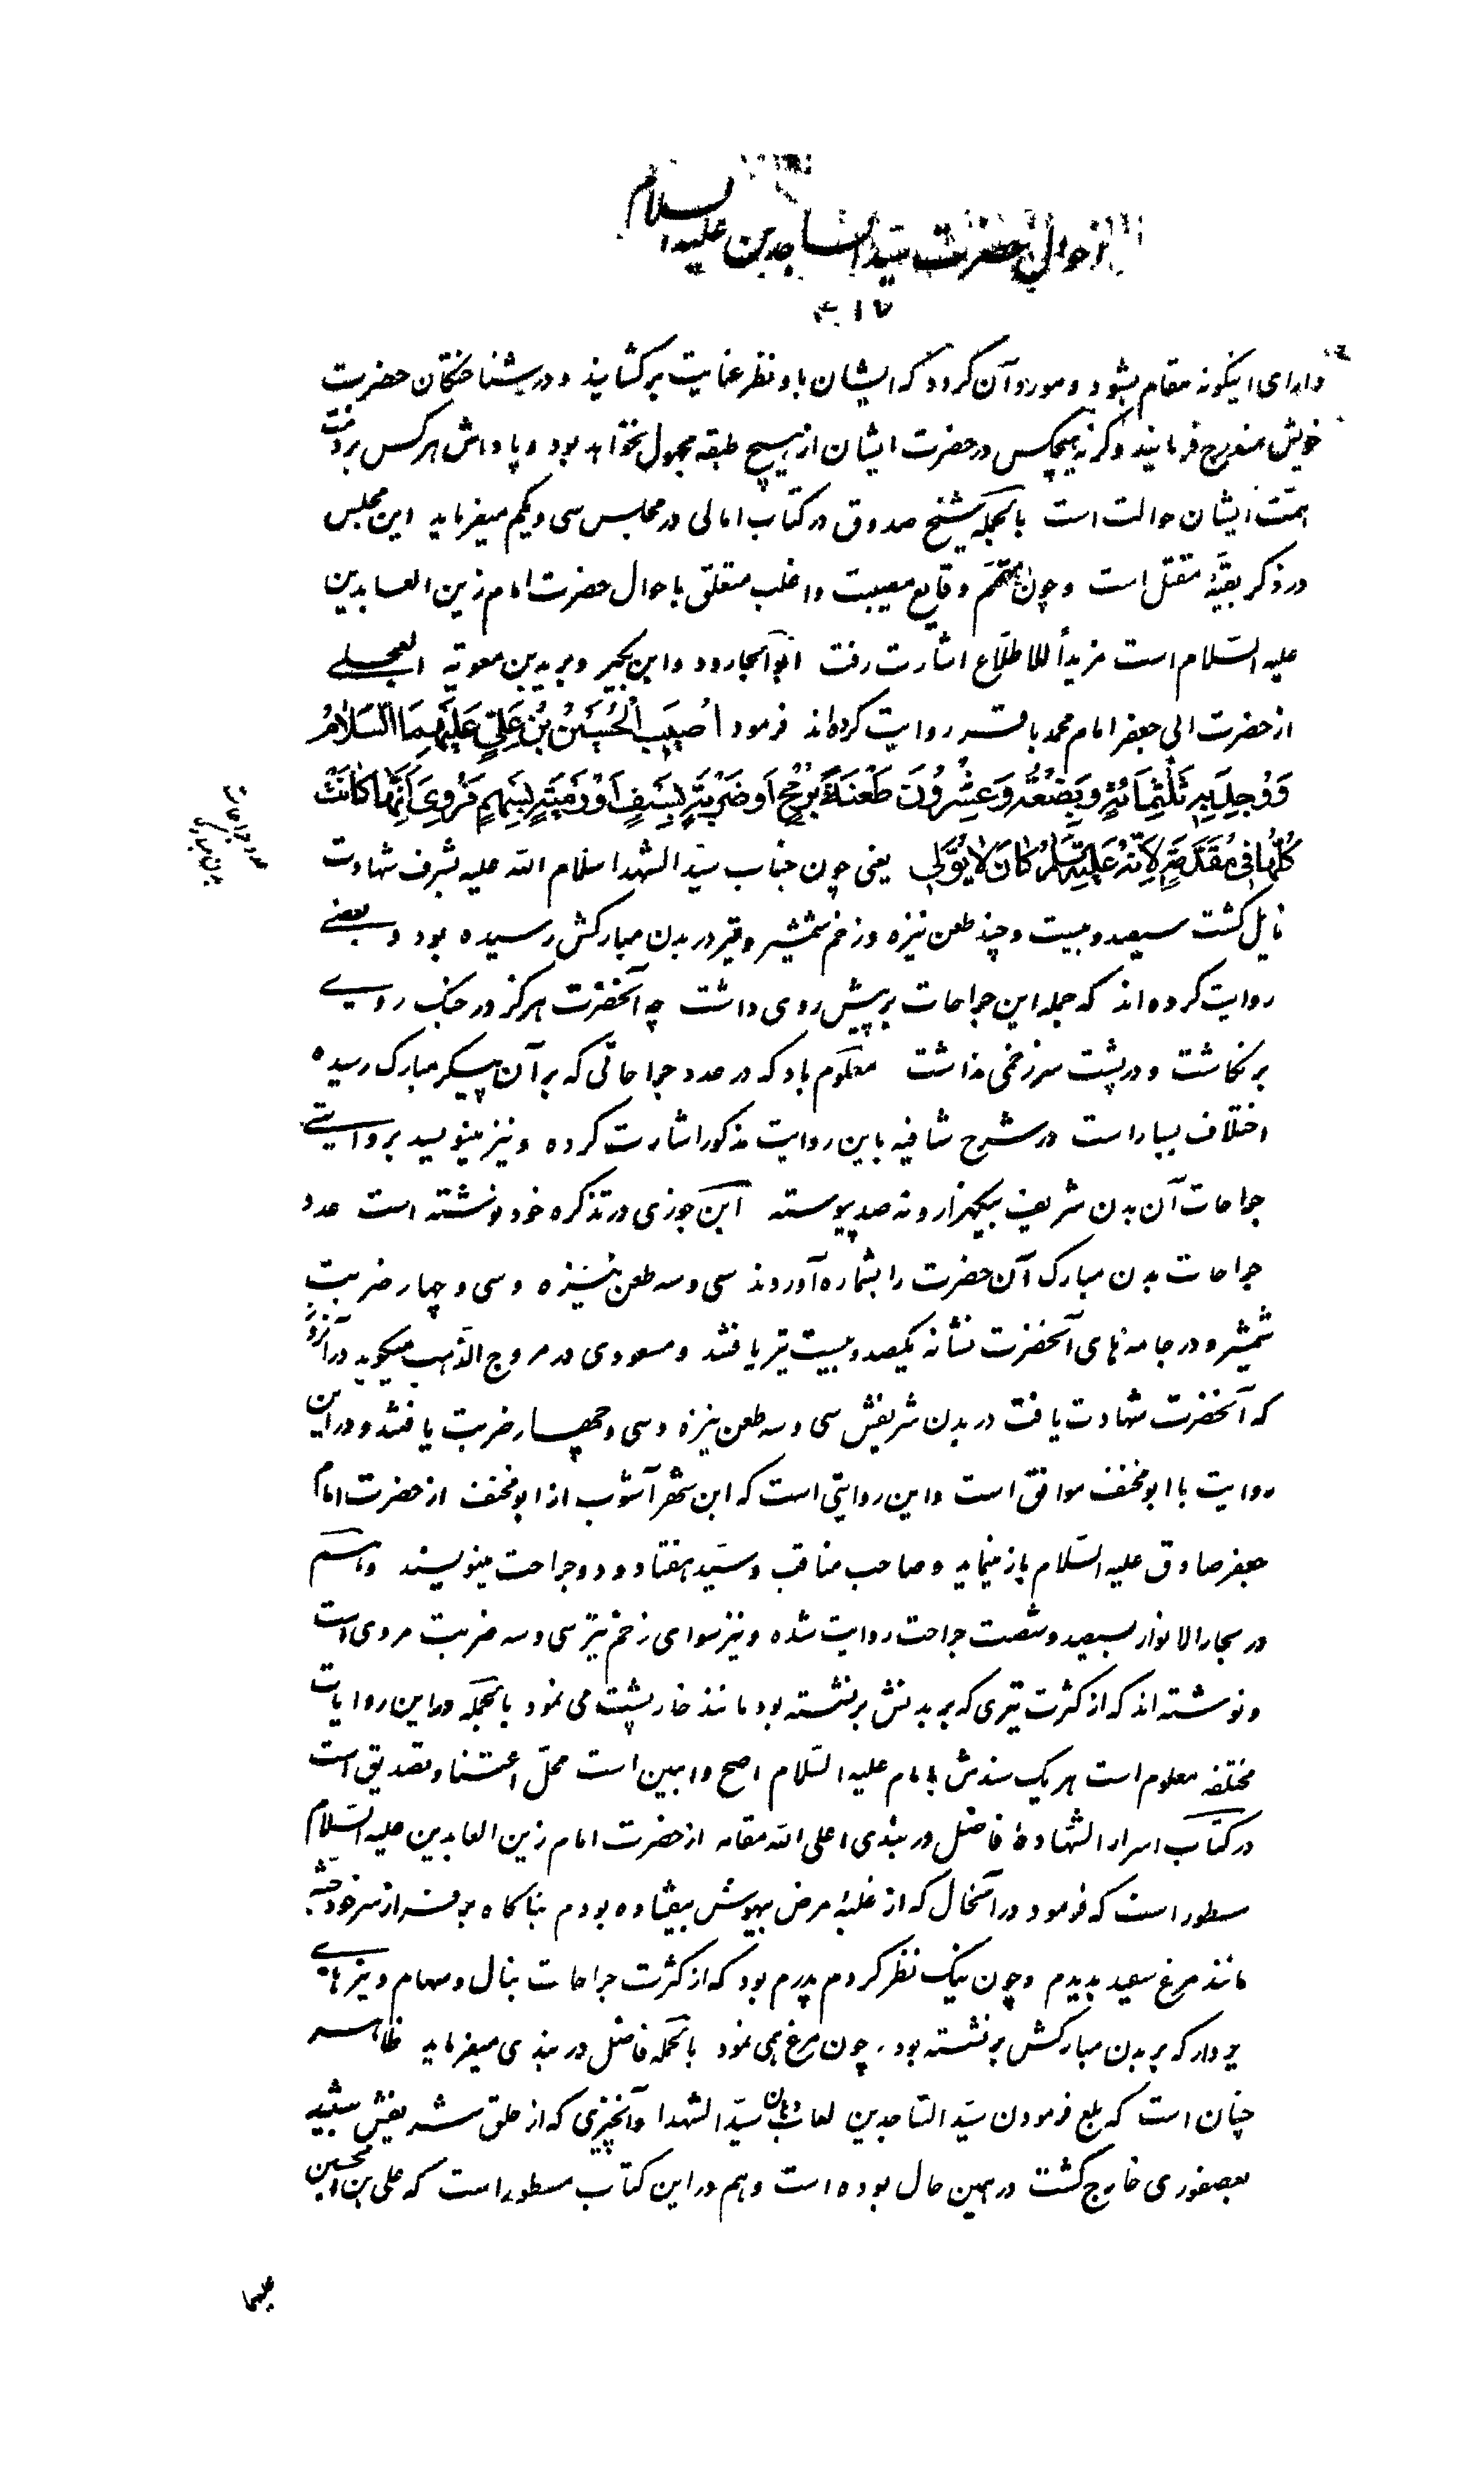 احوال حضرت سید الساجدین علیه السلام
دارای اینکونه مقام بشود و مورد آن کردد که ایشان باو نظر عنایت برکشایند و در شناختکان حضرت
خویش مندرج فرمایند وکرنه هیچکس در حضرت ایشان از هیچ طبقه مجهول نخواهد بود و پاداش هرکس بر ذمت
همت ایشان حوالت است بالجمله شیخ صدوق در کتاب امالی در مجلس سی و یکم میفرماید این مجلس
در ذکر بقیهٔ مقتل است و چون متمم وقایع مصیبت و اغلب متعلق باحوال حضرت امام زین العابدین
علیه السلام است مزیداً للاطلاع اشارت رفت ابو الجارود و ابن بکیر و برید بن معویه العجلی
از حضرت ابی جعفر امام محمد باقر روایت کرده‌اند فرمود اُصیبَ الْحُسَیْنُ بْنُ عَلِیٍّ عَلَیْهِمَا السَّلامُ
وَ وُجِدَ بِهِ ثَلٰثُمِائَةٍ وَ بِضْعَةٌ وَ عِشْرُونَ طَعْنَةً بِرُمْحٍ اَوْ ضَرْبَةٍ بِسَیْفٍ اَوْ رَمْیَةٍ بِسَهْمٍ فَرُوِیَ اَنَّها کانَتْ
کُلُّها فی مُقَدَّمِهِ لِاَنَّهُ عَلَیْهِ السَّلامُ کانَ لا یُوَلّی یعنی چون جناب سید الشهدا سلام الله علیه بشرف شهادت
نایل کشت سیصد و بیست و چند طعن نیزه و زخم شمشیر و تیر در بدن مبارکش رسیده بود و بعضی
روایت کرده‌اند که جمله این جراحات بر پیش روی داشت چه آنحضرت هرکز در جنک روی
برنکاشت و در پشت سر زخمی نداشت معلوم باد که در عدد جراحاتی که بر آن پیکر مبارک رسیده
اختلاف بسیار است در شرح شافیه باین روایت مذکور اشارت کرده و نیز مینویسد بروایتی
جراحات آن بدن شریف بیکهزار و نه صد پیوسته ابن جوزی در تذکره خود نوشته است عدد
جراحات بدن مبارک آن حضرت را بشماره آوردند سی و سه طعن نیزه و سی و چهار ضربت
شمشیر و در جامه‌های آنحضرت نشانه یکصد و بیست تیر یافتند و مسعودی در مروج الذهب میکوید در آنروز
که آنحضرت شهادت یافت در بدن شریفش سی و سه طعن نیزه و سی و چهار ضربت یافتند و در این
روایت با ابو مخنف موافق است و این روایتی است که ابن شهر آشوب از ابو مخنف از حضرت امام
جعفر صادق علیه السلام باز مینماید و صاحب مناقب و سید هفتاد و دو جراحت مینویسند و هم
در بحار الانوار سیصد و شصت جراحت روایت شده و نیز سوای زخم تیر سی و سه ضربت مروی است
و نوشته‌اند که از کثرت تیری که بر بدنش بر نشسته بود مانند خارپشت می نمود بالجمله در این روایات
مختلفه معلوم است هر یک سندش بامام علیه السلام اصح و ابین است محل اعتنا و تصدیق است
در کتاب اسرار الشهاده فاضل دربندی اعلی الله مقامه از حضرت امام زین العابدین علیه السلام
مسطور است که فرمود در آنحال که از غلبهٔ مرض بیهوش بیفتاده بودم بناکاه بر فراز سر خود
مانند مرغ سعید بدیدم و چون نیک نظر کردم پدرم بود که از کثرت جراحات نبال و سهام و نیزهای
پردار که بر بدن مبارکش بر نشسته بود، چون مرغ همی نمود بالجمله فاضل دربندی میفرماید ظاهر
چنان است که بلع فرمودن سید الساجدین لعاب دهان سید الشهدا و آنچیزی که از حلق شریفش شبیه
بعصفوری خارج کشت در همین حال بوده است و هم در این کتاب مسطور است که علی بن الحسین
علیهما
عدد جراحات
بدن مبارک